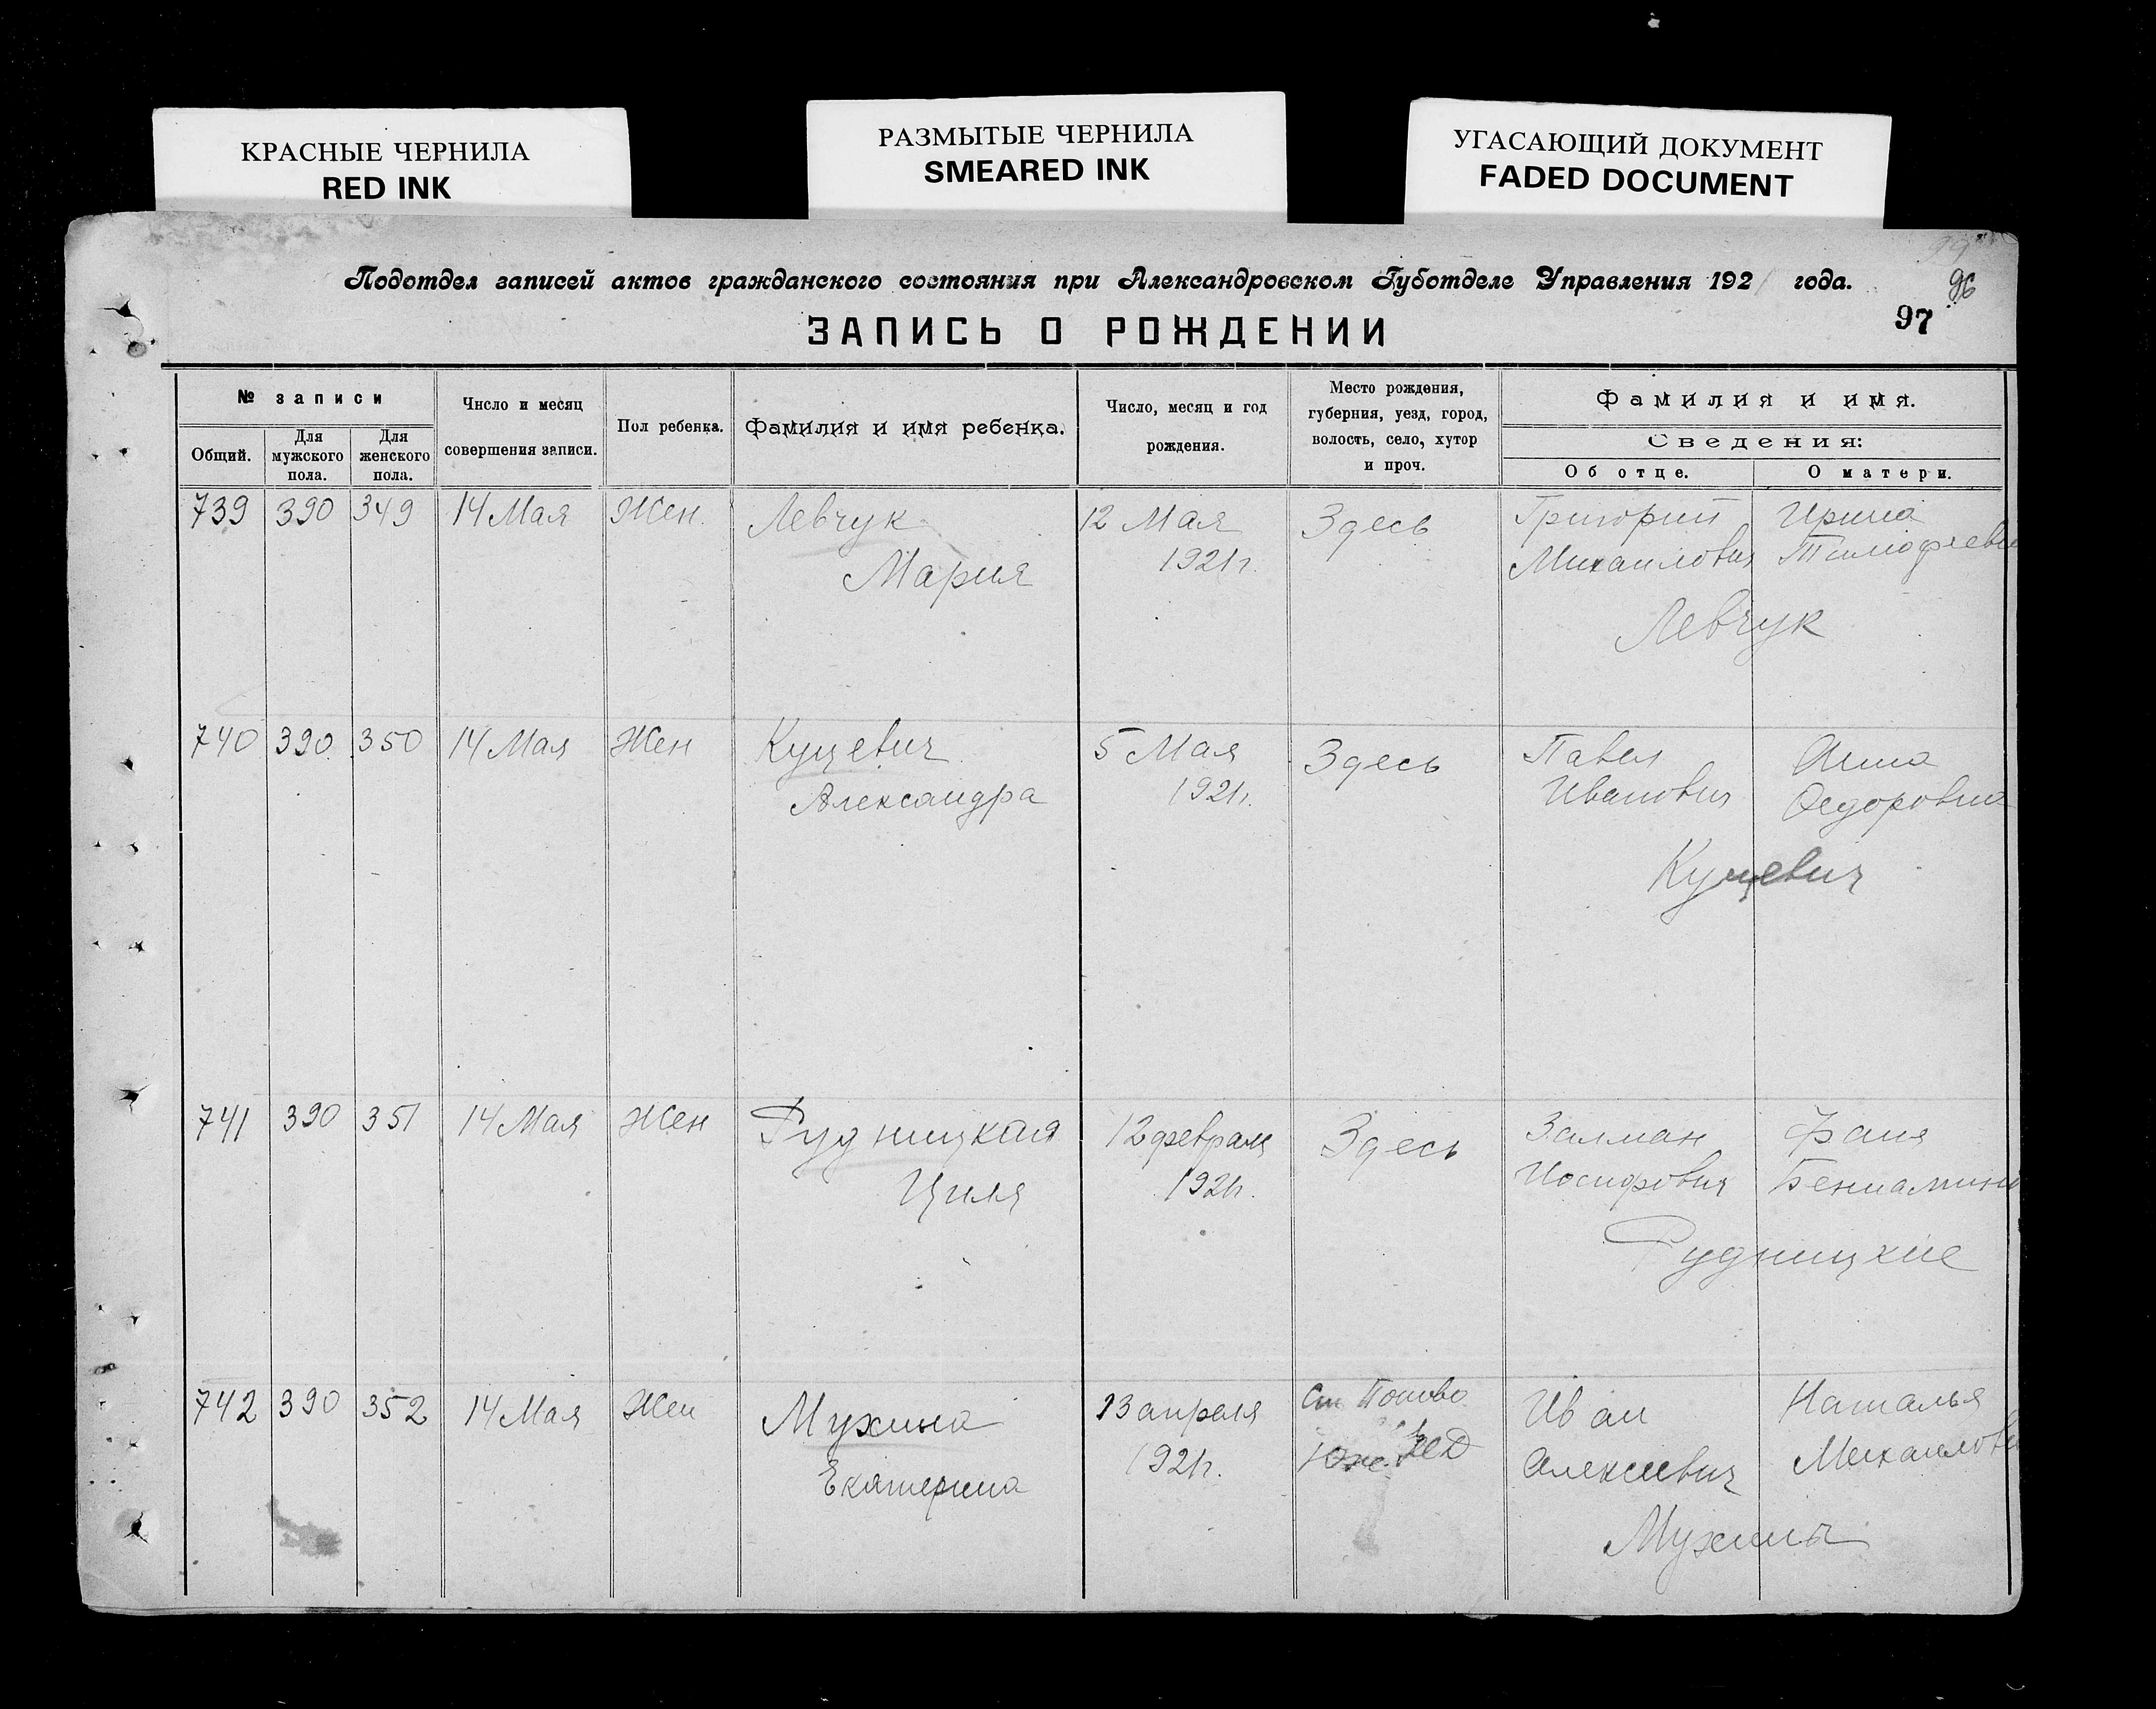 КРАСНЫЕ ЧЕРНИЛА
RED INK
РАЗМЫТЫЕ ЧЕРНИЛА
SMEARED INK
УГАСАЮЩИЙ ДОКУМЕНТ
FADED DOCUMENT
Подотдел записей актов гражданского состояния при Александровском Губотделе Управления 1921 года.
96
97
ЗАПИСЬ О РОЖДЕНИИ
№ записи
Общий.
Для мужского пола.
Для женского пола.
Число и месяц
совершения записи.
Пол ребенка.
Фамилия и имя ребенка.
Число, месяц и год
рождения.
Место рождения,
губерния, уезд, город,
волость, село, хутор
и проч.
Фамилия и имя.
Сведения:
Об отце.
О матери.
739 390 349 14 Мая Жен. Левчук 12 Мая Здесь Григорий Ирина
Мария 1921г. Михаилович Тимофеевн
Левчук
740 390 350 14 Мая Жен Куцевич 5 Мая Здесь Павел Анна
Александра 1921г. Иванович Федоровна
Куцевич
741 390 351 14 Мая Жен Рудницкая 12 февраля Здесь Залман Фаня
Циля 1921г. Иосифович Бениамино
Рудницкие
742 390 352 14 Мая Жен Мухина 23 апреля Ст Попово Иван Наталья
Екатерина 1921г. Юж. ЖД Алексеевич Михаилов
Мухины